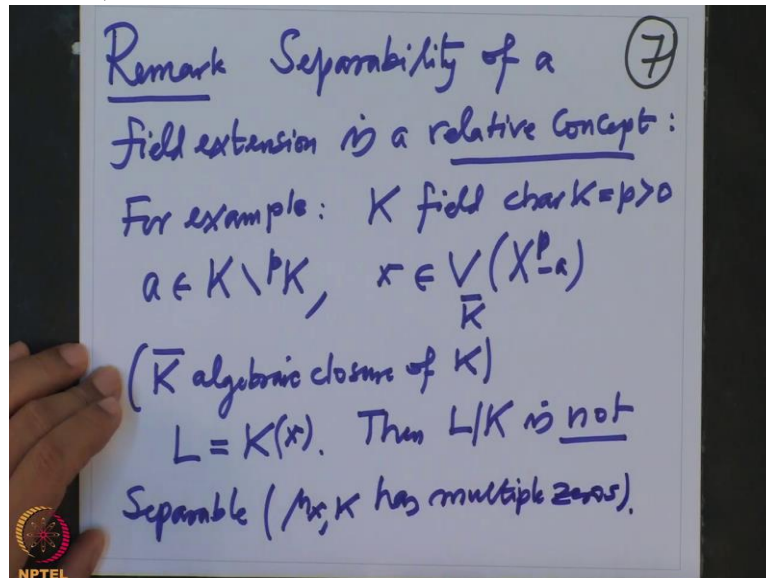 Remark Separability of a ⑦
field extension is a relative Concept :
For example : K field char K = p > 0
a ∈ K \ ᵖK, x ∈ V_K̄ (Xᵖ - a)
(K̄ algebraic closure of K)
L = K(x). Then L/K is not
Separable (μx,K has multiple zeros).
NPTEL